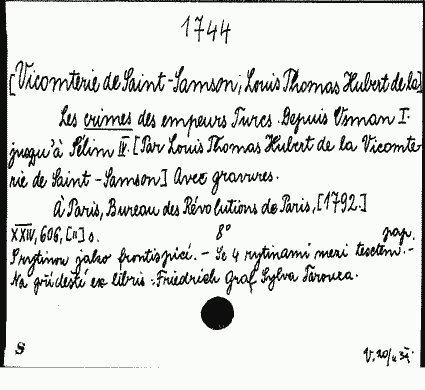 1744
[Vicomterie de Saint-Samson, Louis Thomas Hubert de la]
Les crimes des empeurs Turcs. Depuis Osman I.
jusqu'à Sélim IV. [Par Louis Thomas Hubert de la Vicomte-
rie de Saint-Samson] Avec gravures.
À Paris, Bureau des Révolutions de Paris, [1792.]
XXIV, 606, [II] s. 8° pap.
S rytinou jako frontispicí. - Se 4 rytinami mezi textem. -
Na přídeští ex libris: Friedrich Graf Sylva Tarouca.
S